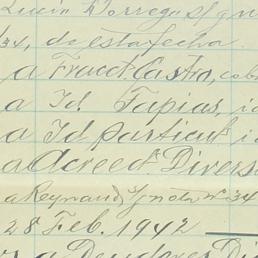 34, de esta fecha
a Fracct. Castro, cob
a Id. Tapias, i
a Id particul
a Acreed. Divers
a Reynaud, s/nota nº 34
28 Feb. 1942
a Deudores Di